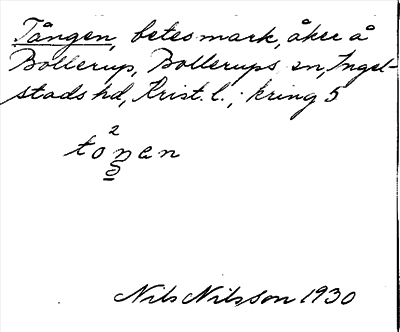 Tången, betesmark, åker å
Bollerup, Bollerups sn, Ingel-
stads hd, Krist. l.; kring 5
2
tonen
Nils Nilsson 1930